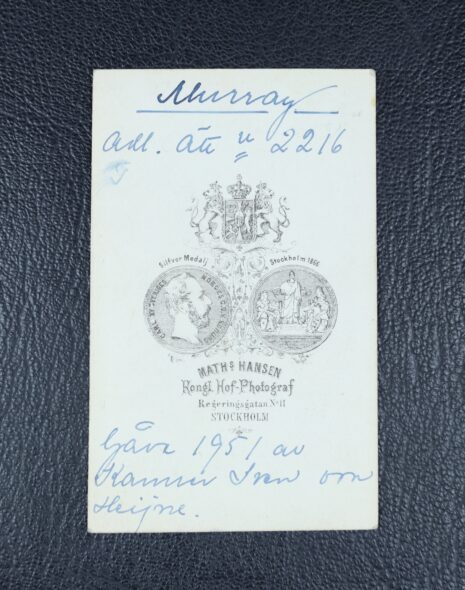 Murray
Adl. ätt n 2216
Silfver Medalj
Stockholm 1866
CARL XV SVERIGES NORGES
MATHS HANSEN
Kongl. Hof-Photograf
Regeringsgatan No 11
STOCKHOLM
Gåva 1951 av
Kammr Sven von
Heijne.